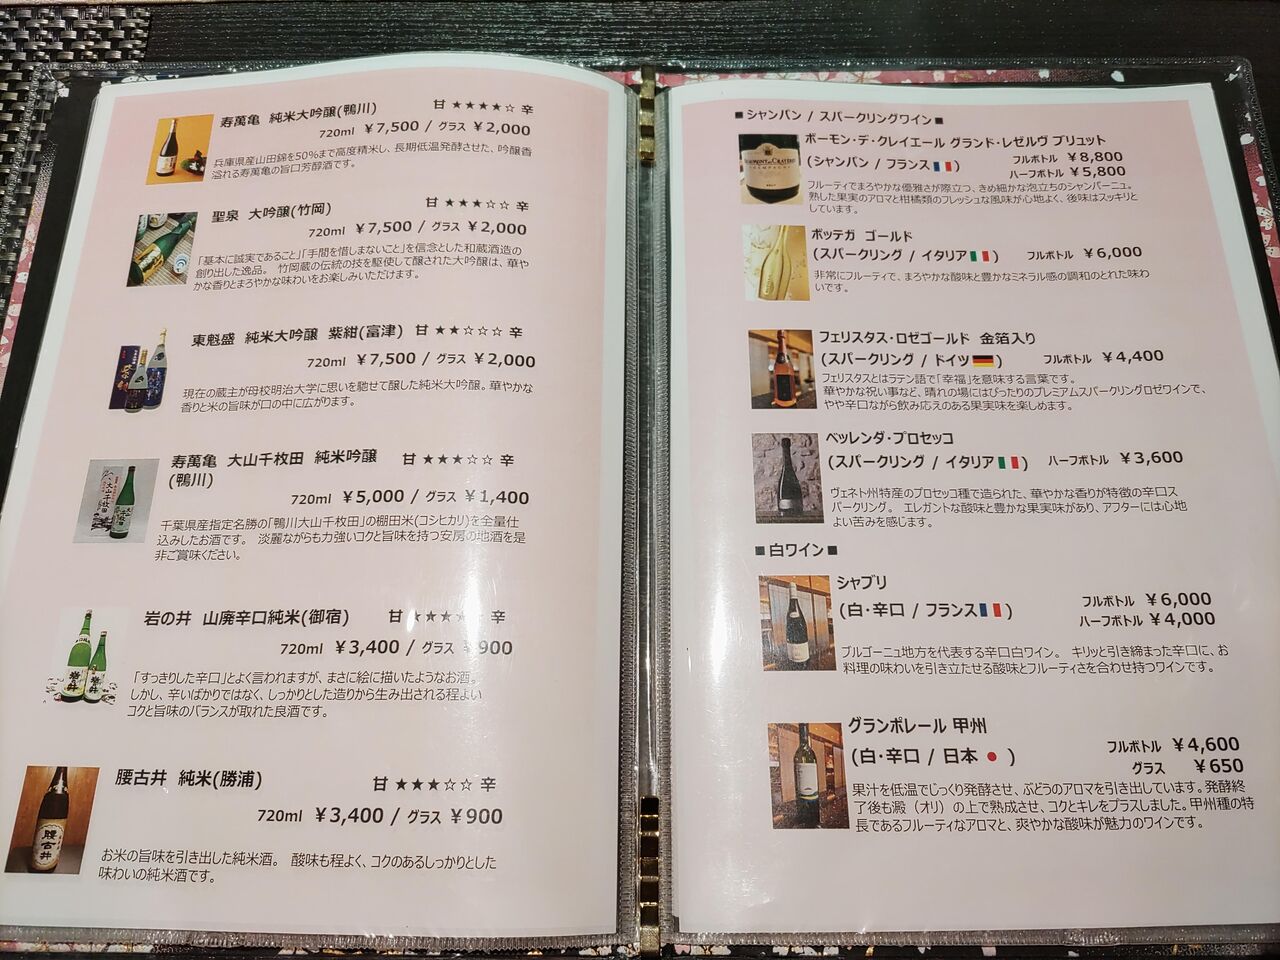 寿萬亀 純米大吟醸(鴨川) 甘 ★★★★☆ 辛
720ml ¥7,500 / グラス ¥2,000
兵庫県産山田錦を50%まで高度精米し、長期低温発酵させた、吟醸香
溢れる寿萬亀の旨口芳醇酒です。
聖泉 大吟醸(竹岡) 甘 ★★★☆☆ 辛
720ml ¥7,500 / グラス ¥2,000
「基本に誠実であること」「手間を惜しまないこと」を信念とした和蔵酒造の
創り出した逸品。 竹岡蔵の伝統の技を駆使して醸された大吟醸は、華や
かな香りとまろやかな味わいをお楽しみいただけます。
東魁盛 純米大吟醸 紫紺(富津) 甘 ★★☆☆☆ 辛
720ml ¥7,500 / グラス ¥2,000
現在の蔵主が母校明治大学に思いを馳せて醸した純米大吟醸。華やかな
香りと米の旨味が口の中に広がります。
寿萬亀 大山千枚田 純米吟醸 甘 ★★★☆☆ 辛
(鴨川)
720ml ¥5,000 / グラス ¥1,400
千葉県産指定名勝の「鴨川大山千枚田」の棚田米(コシヒカリ)を全量仕
込みしたお酒です。 淡麗ながらも力強いコクと旨味を持つ安房の地酒を是
非ご賞味ください。
岩の井 山廃辛口純米(御宿) 甘 ★★★★☆ 辛
720ml ¥3,400 / グラス ¥900
「すっきりした辛口」とよく言われますが、まさに絵に描いたようなお酒。
しかし、辛いばかりではなく、しっかりとした造りから生み出される程よい
コクと旨味のバランスが取れた良酒です。
腰古井 純米(勝浦) 甘 ★★★☆☆ 辛
720ml ¥3,400 / グラス ¥900
お米の旨味を引き出した純米酒。 酸味も程よく、コクのあるしっかりとした
味わいの純米酒です。
■シャンパン / スパークリングワイン■
ボーモン・デ・クレイエール グランド・レゼルヴ ブリュット
(シャンパン / フランス) フルボトル ¥8,800
ハーフボトル ¥5,800
フルーティでまろやかな優雅さが際立つ、きめ細かな泡立ちのシャンパーニュ。
熟した果実のアロマと柑橘類のフレッシュな風味が心地よく、後味はスッキリと
しています。
ボッテガ ゴールド
(スパークリング / イタリア) フルボトル ¥6,000
非常にフルーティで、まろやかな酸味と豊かなミネラル感の調和のとれた味わ
いです。
フェリスタス・ロゼゴールド 金箔入り
(スパークリング / ドイツ) フルボトル ¥4,400
フェリスタスとはラテン語で「幸福」を意味する言葉です。
華やかな祝い事など、晴れの場にはぴったりのプレミアムスパークリングロゼワインで、
やや辛口ながら飲み応えのある果実味を楽しめます。
ベッレンダ・プロセッコ
(スパークリング / イタリア) ハーフボトル ¥3,600
ヴェネト州特産のプロセッコ種で造られた、華やかな香りが特徴の辛口ス
パークリング。 エレガントな酸味と豊かな果実味があり、アフターには心地
よい苦みを感じます。
■白ワイン■
シャブリ
(白・辛口 / フランス) フルボトル ¥6,000
ハーフボトル ¥4,000
ブルゴーニュ地方を代表する辛口白ワイン。 キリッと引き締まった辛口に、お
料理の味わいを引き立たせる酸味とフルーティさを合わせ持つワインです。
グランポレール 甲州
(白・辛口 / 日本) フルボトル ¥4,600
グラス ¥650
果汁を低温でじっくり発酵させ、ぶどうのアロマを引き出しています。発酵終
了後も澱（オリ）の上で熟成させ、コクとキレをプラスしました。甲州種の特
長であるフルーティなアロマと、爽やかな酸味が魅力のワインです。